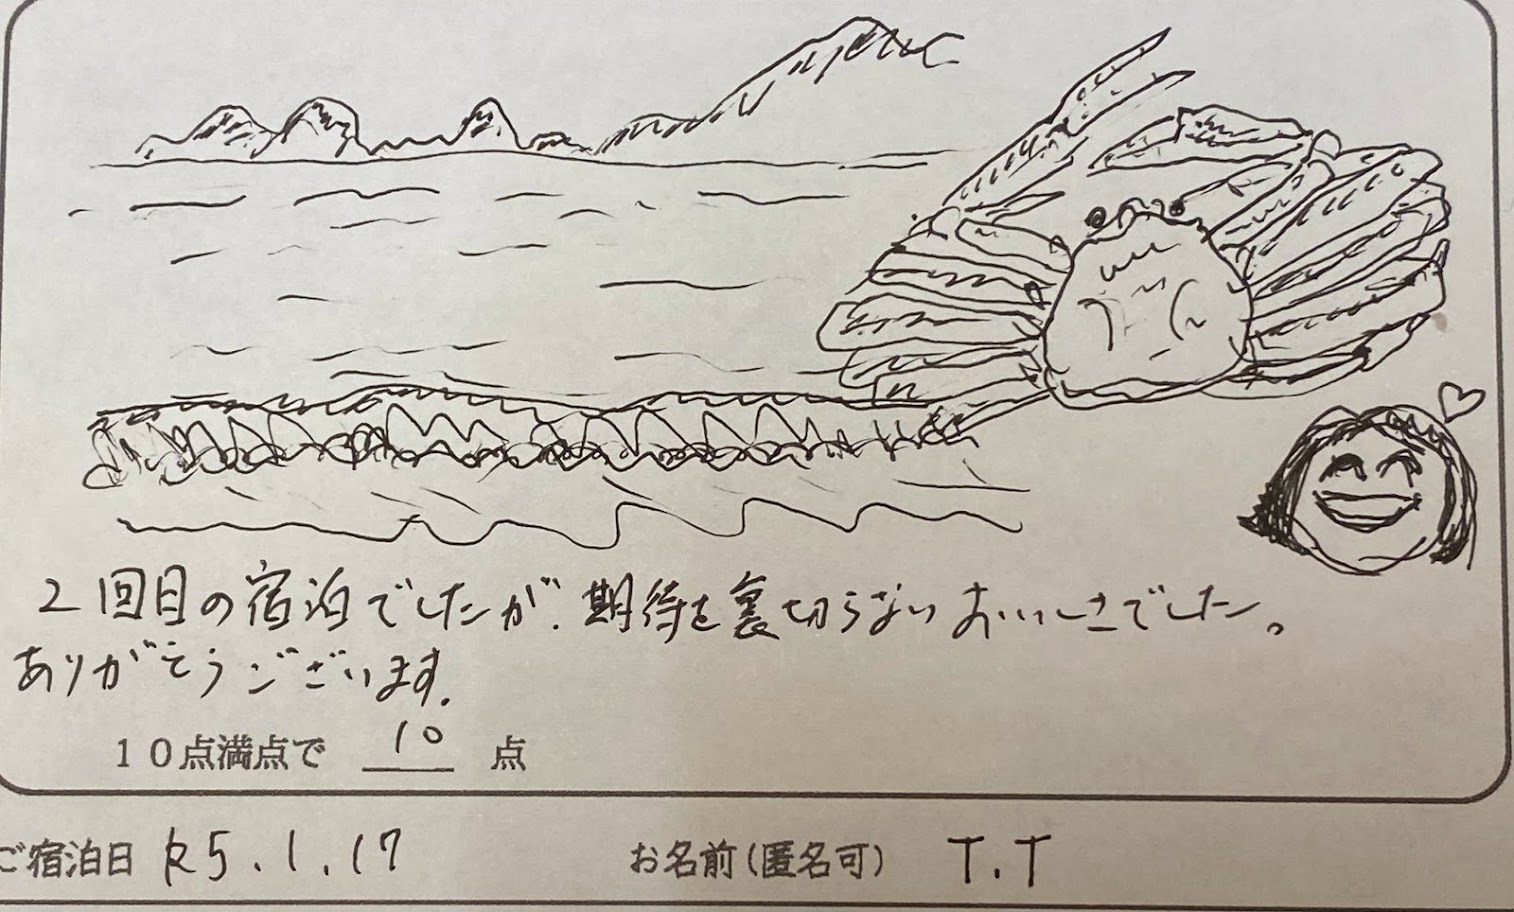 2回目の宿泊でしたが、期待を裏切らないおいしさでした。
ありがとうございます。
10点満点で 10 点
ご宿泊日 R5.1.17
お名前(匿名可) T.T